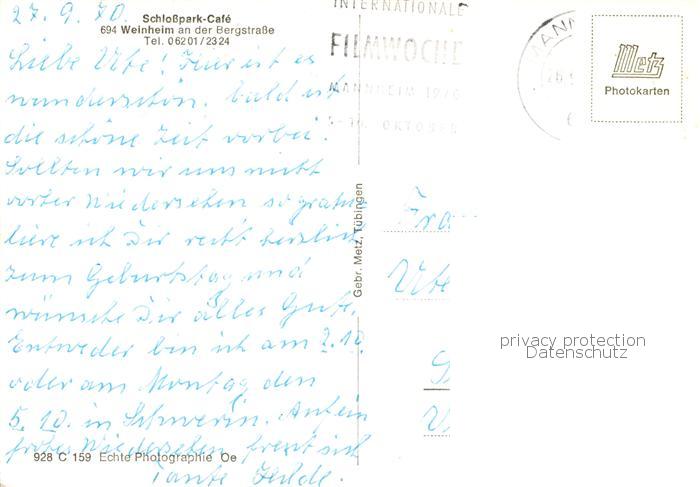 27. 9. 70.
Schloßpark-Café
694 Weinheim an der Bergstraße
Tel. 06201/2324
Liebe Ute! Hier ist es
wunderschön. Bald ist
die schöne Zeit vorbei.
Sollten wir uns nicht
vorher Wiedersehen so gratu
liere ich Dir recht herzlich
zum Geburtstag und
wünsche Dir alles Gute.
Entweder bin ich am 2.10.
oder am Montag den
5. 10. in Schwerin. Auf ein
frohes Wiedersehen freut sich
Tante
928 C 159 Echte Photographie Oe
INTERNATIONALE
FILMWOCHE
MANNHEIM 1970
OKTOBER
MANN
Metz
Photokarten
Gebr. Metz, Tübingen
Fra
Ute
privacy protection
Datenschutz